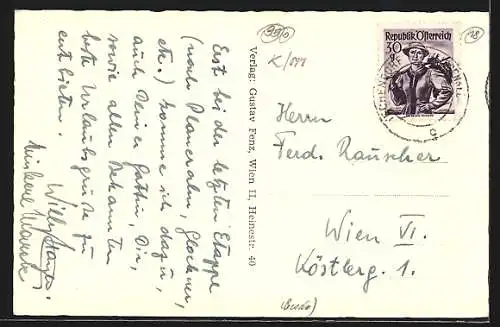 Erst bei der letzten Etappe
(nach Planeralm, Glockner,
etc.) komme ich dazu,
auch Deiner Gattin, Dir,
sowie allen Bekannten
beste Urlaubsgrüße zu
entbieten.
Willy
Verlag: Gustav Fenz, Wien II, Heinestr. 40
Republik Österreich
30
g
Herrn
Ferd. Rauscher
Wien VI.
Köstlerg. 1.
18